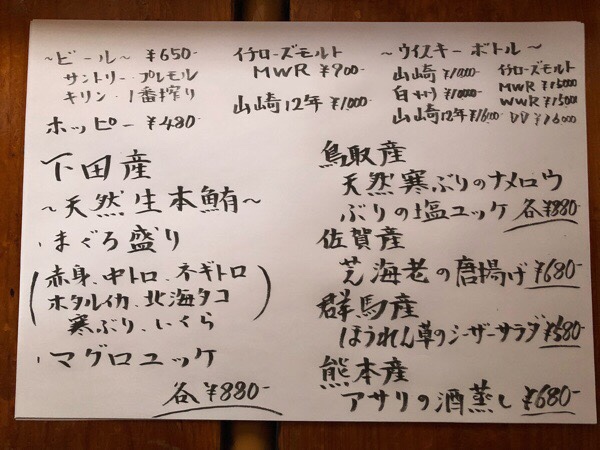 ~ビール~ ¥650-
サントリー・プレモル
キリン・1番搾り
ホッピー ¥480
イチローズモルト
MWR ¥900-
山崎12年 ¥1000-
~ウイスキーボトル~
山崎 ¥10000-
白州 ¥10000-
山崎12年 ¥16000
イチローズモルト
MWR ¥15000
WWR ¥15000
DD ¥16000
下田産
~天然生本鮪~
・まぐろ盛り
(赤身、中トロ、ネギトロ
ホタルイカ、北海タコ
寒ぶり、いくら)
・マグロユッケ
各¥880-
鳥取産
天然寒ぶりのナメロウ
ぶりの塩ユッケ 各¥880-
佐賀産
芝海老の唐揚げ ¥680-
群馬産
ほうれん草のシーザーサラダ ¥580-
熊本産
アサリの酒蒸し ¥680-